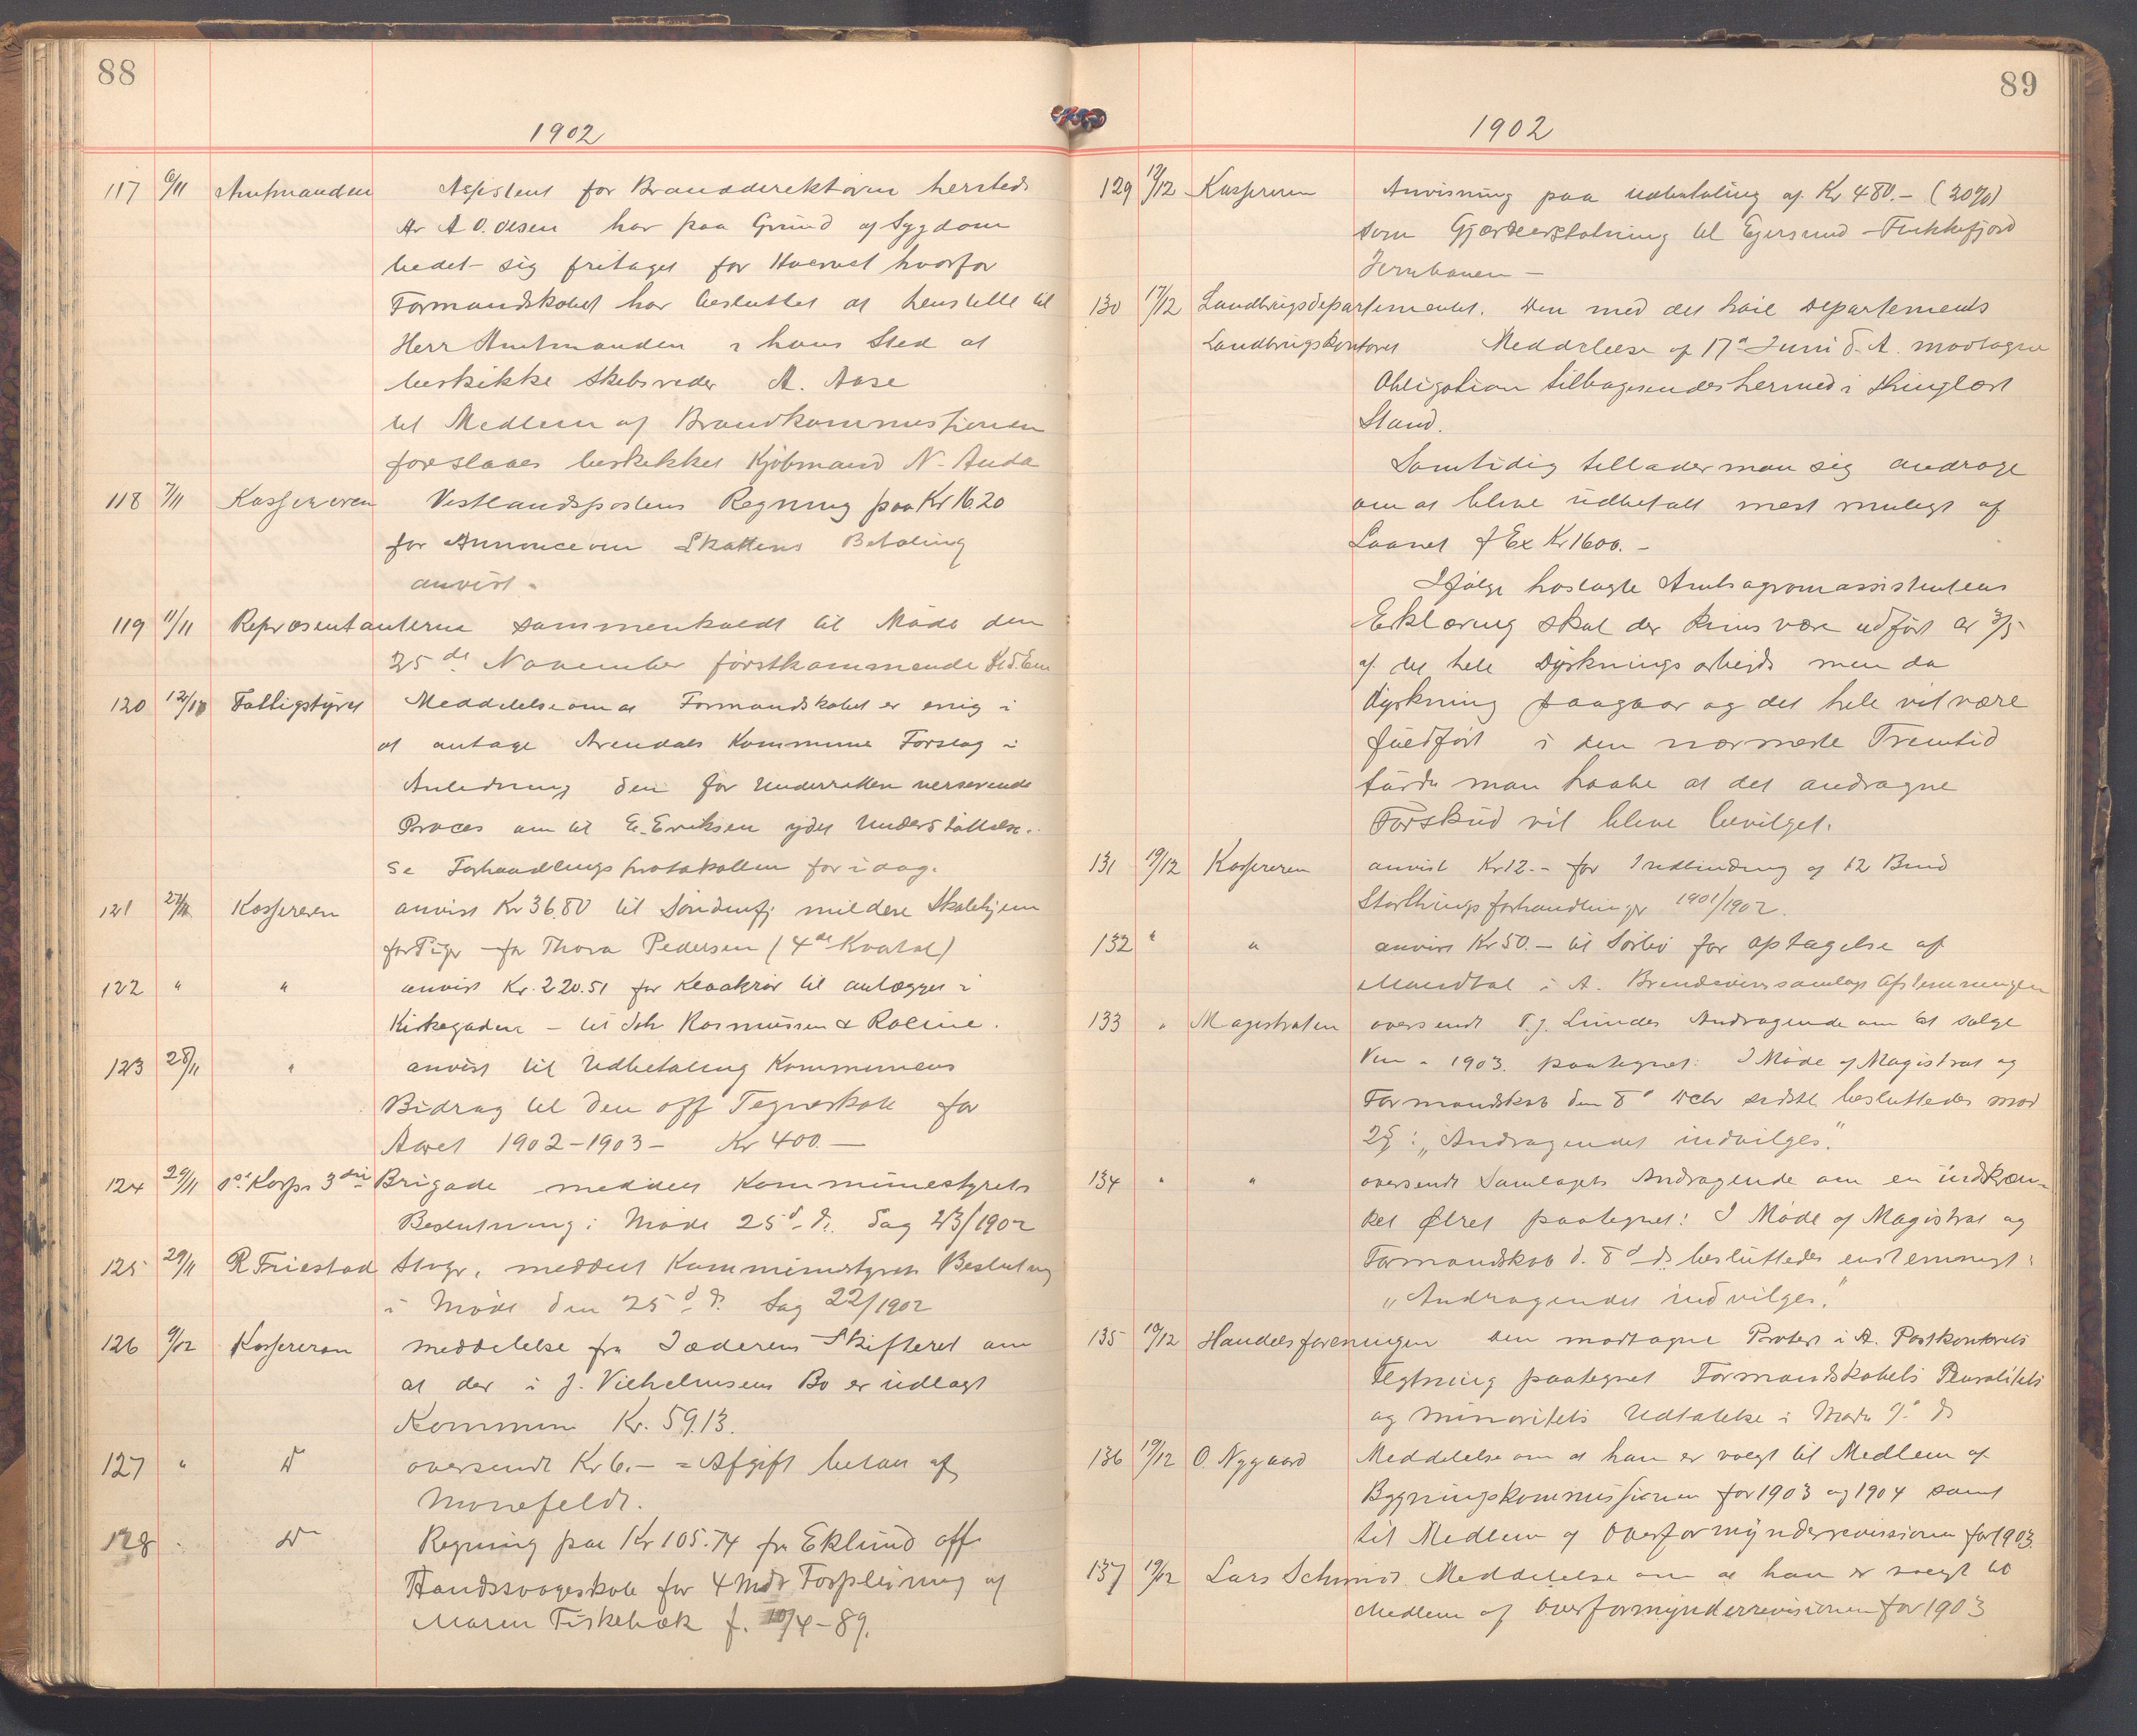 88
1902
117 6/11 Amtmanden Assistent for Branddirektøren hersteds
Hr A O. Olsen har paa Grund af Sygdom
bedet sig fritaget for Hvervet hvorfor
Formandskabet har besluttet at henstille til
Herr Amtmanden i hans Sted at
beskikke Skibsreder A. Aase
til Medlem af Brandkommissionen
foreslaaes beskikket Kjøbmand N. Anda
118 7/11 Kassereren Vestlandspostens Regning paa Kr 16.20
for Annonce om Skattens Betaling
anvist.
119 11/11 Repræsentanterne sammenkaldt til Møde den
25de November førstkommende
120 12/11 Fattigstyret Meddelelse om at Formandskabet er enig i
at antage Arendals Kommune Forslag i
Anledning den for Underretten verserende
Proces om til E. Eriksen ydet Understøttelse.
Se Forhandlingsprotokollen for idag.
121 27/11 Kassereren anvist Kr 36.80 til Søndenfj mildere Skolehjem
for Piger for Thora Pedersen (4de Kvartal)
122 " " anvist Kr. 220.51 for Kloakrør til anlægget i
Kirkegaden - til Joh Rasmussen & Racine.
123 28/11 " anvist til Udbetaling Kommunens
Bidrag til den off Tegneskole for
Aaret 1902-1903 - Kr 400.—
124 29/11 Korps 3die Brigade meddelt Kommunestyrets
Beslutning i Møde 25d ds. Sag 23/1902
125 29/11 R Friestad Stvgr. meddelt Kommunestyrets Beslutng
i Møde den 25d ds Sag 22/1902
126 9/12 Kassereren meddelelse fra Jæderens Skifteret om
at der i J. Vilhelmsens Bo er udlagt
Kommunen Kr. 59.13.
127 " Do oversendt Kr 6.— = Afgift betalt af
Monefeldt.
128 . Do Regning paa Kr 105.74 fra Eklund off.
Aandssvageskole for 4 Mdr Forpleining af
Maren Fiskebæk f. 10/4-89.
89
1902
129 12/12 Kassereren Anvisning paa Udbetaling af Kr 480.- (20%)
som Gjerdeerstatning til Egersund - Flekkefjord
Jernbanen —
130 17/12 Landbrugsdepartementet. Den med det høie Departements
Landbrugskontoret Meddelelse af 17d Juni d. A. modtagne
Obligation tilbagesendes hermed i thinglæst
Stand.
Samtidig tillader man sig andrage
om at blive udbetalt mest muligt af
Laanet f Ex Kr 1600.-
Ifølge hoslagte Amtsagronomassistentens
Erklæring skal der kuns være udført ca 3/5
af det hele Dyrkningsarbeide men da
Dyrkning paagaar og det hele vil være
fuldført i den nærmeste Fremtid
turde man haabe at det andragne
Forskud vil blive bevilget.
131 19/12 Kassereren anvist Kr 12.- for Indbinding af 12 Bind
Storthingsforhandlinger 1901/1902.
132 " " anvist Kr 50.- til Sørbø for Optagelse af
Mandtal i A. Brændevinssamlags Afstemningen
133 " Magistraten oversendt T. J. Lundes Andragende om at sælge
Vin i 1903. paategnet: I Møde af Magistrat og
Formandskab den 8d Decbr sidste besluttedes mod
2: "Andragendet indvilges."
134 " " oversendt Samlagets Andragende om en indskræn-
ket Ølret paategnet: I Møde af Magistrat og
Formandskab d. 8d ds besluttedes enstemmigt:
"Andragendet indvilges."
135 19/12 Handelsforeningen den modtagne Protest i A. Postkontorets
Flytning paategnet Formandskabets Pluralitets
og Minoritets Udtalelse i Møde 9d ds
136 19/12 O. Nygaard Meddelelse om at han er valgt til Medlem af
Bygningskommissionen for 1903 og 1904 samt
til Medlem af Overformynderrevisionen for 1903.
137 19/12 Lars Schmidt Meddelelse om at han er valgt til
Medlem af Overformynderrevisionen for 1903